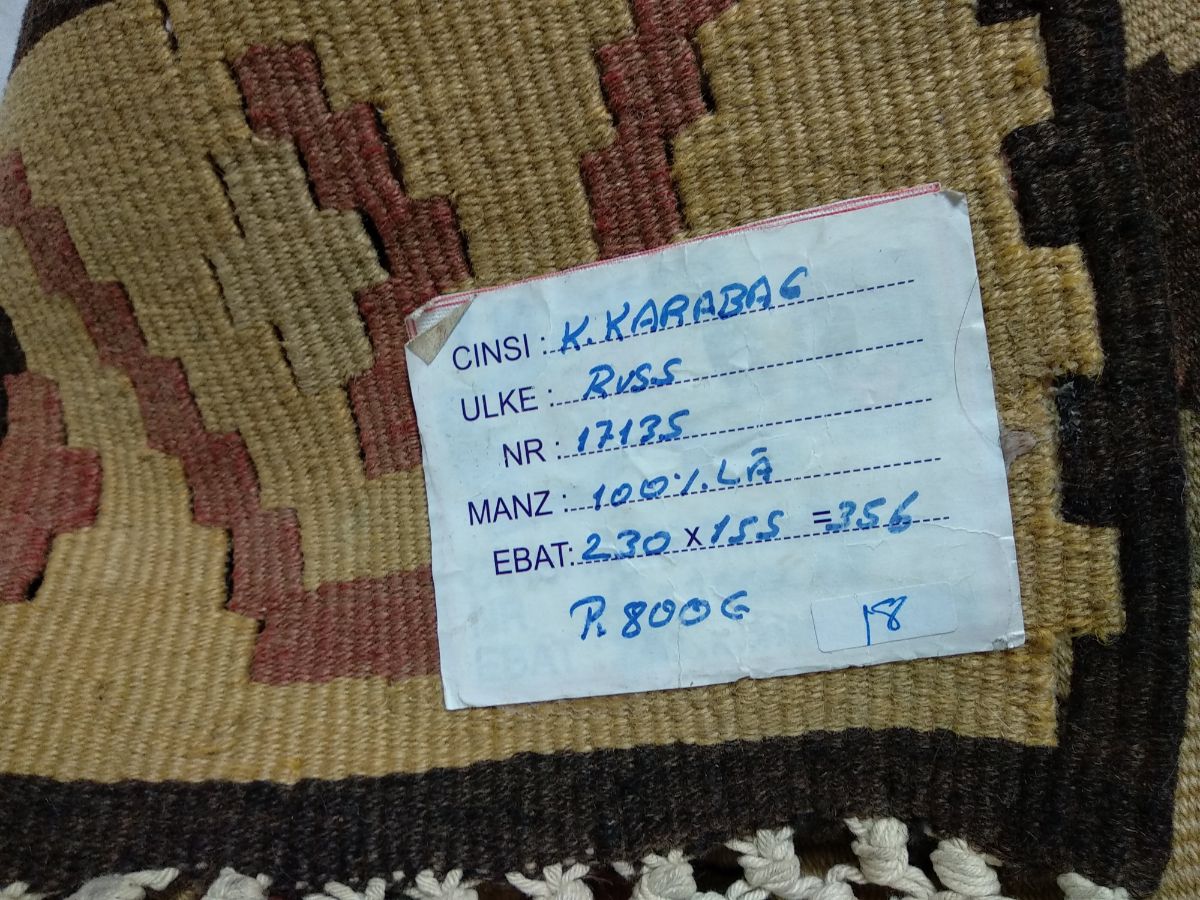 CINSI : K.KARABAG
ULKE : RUSS
NR : 17135
MANZ : 100%.LÃ
EBAT: 230 x 155 = 356
P. 800G
18